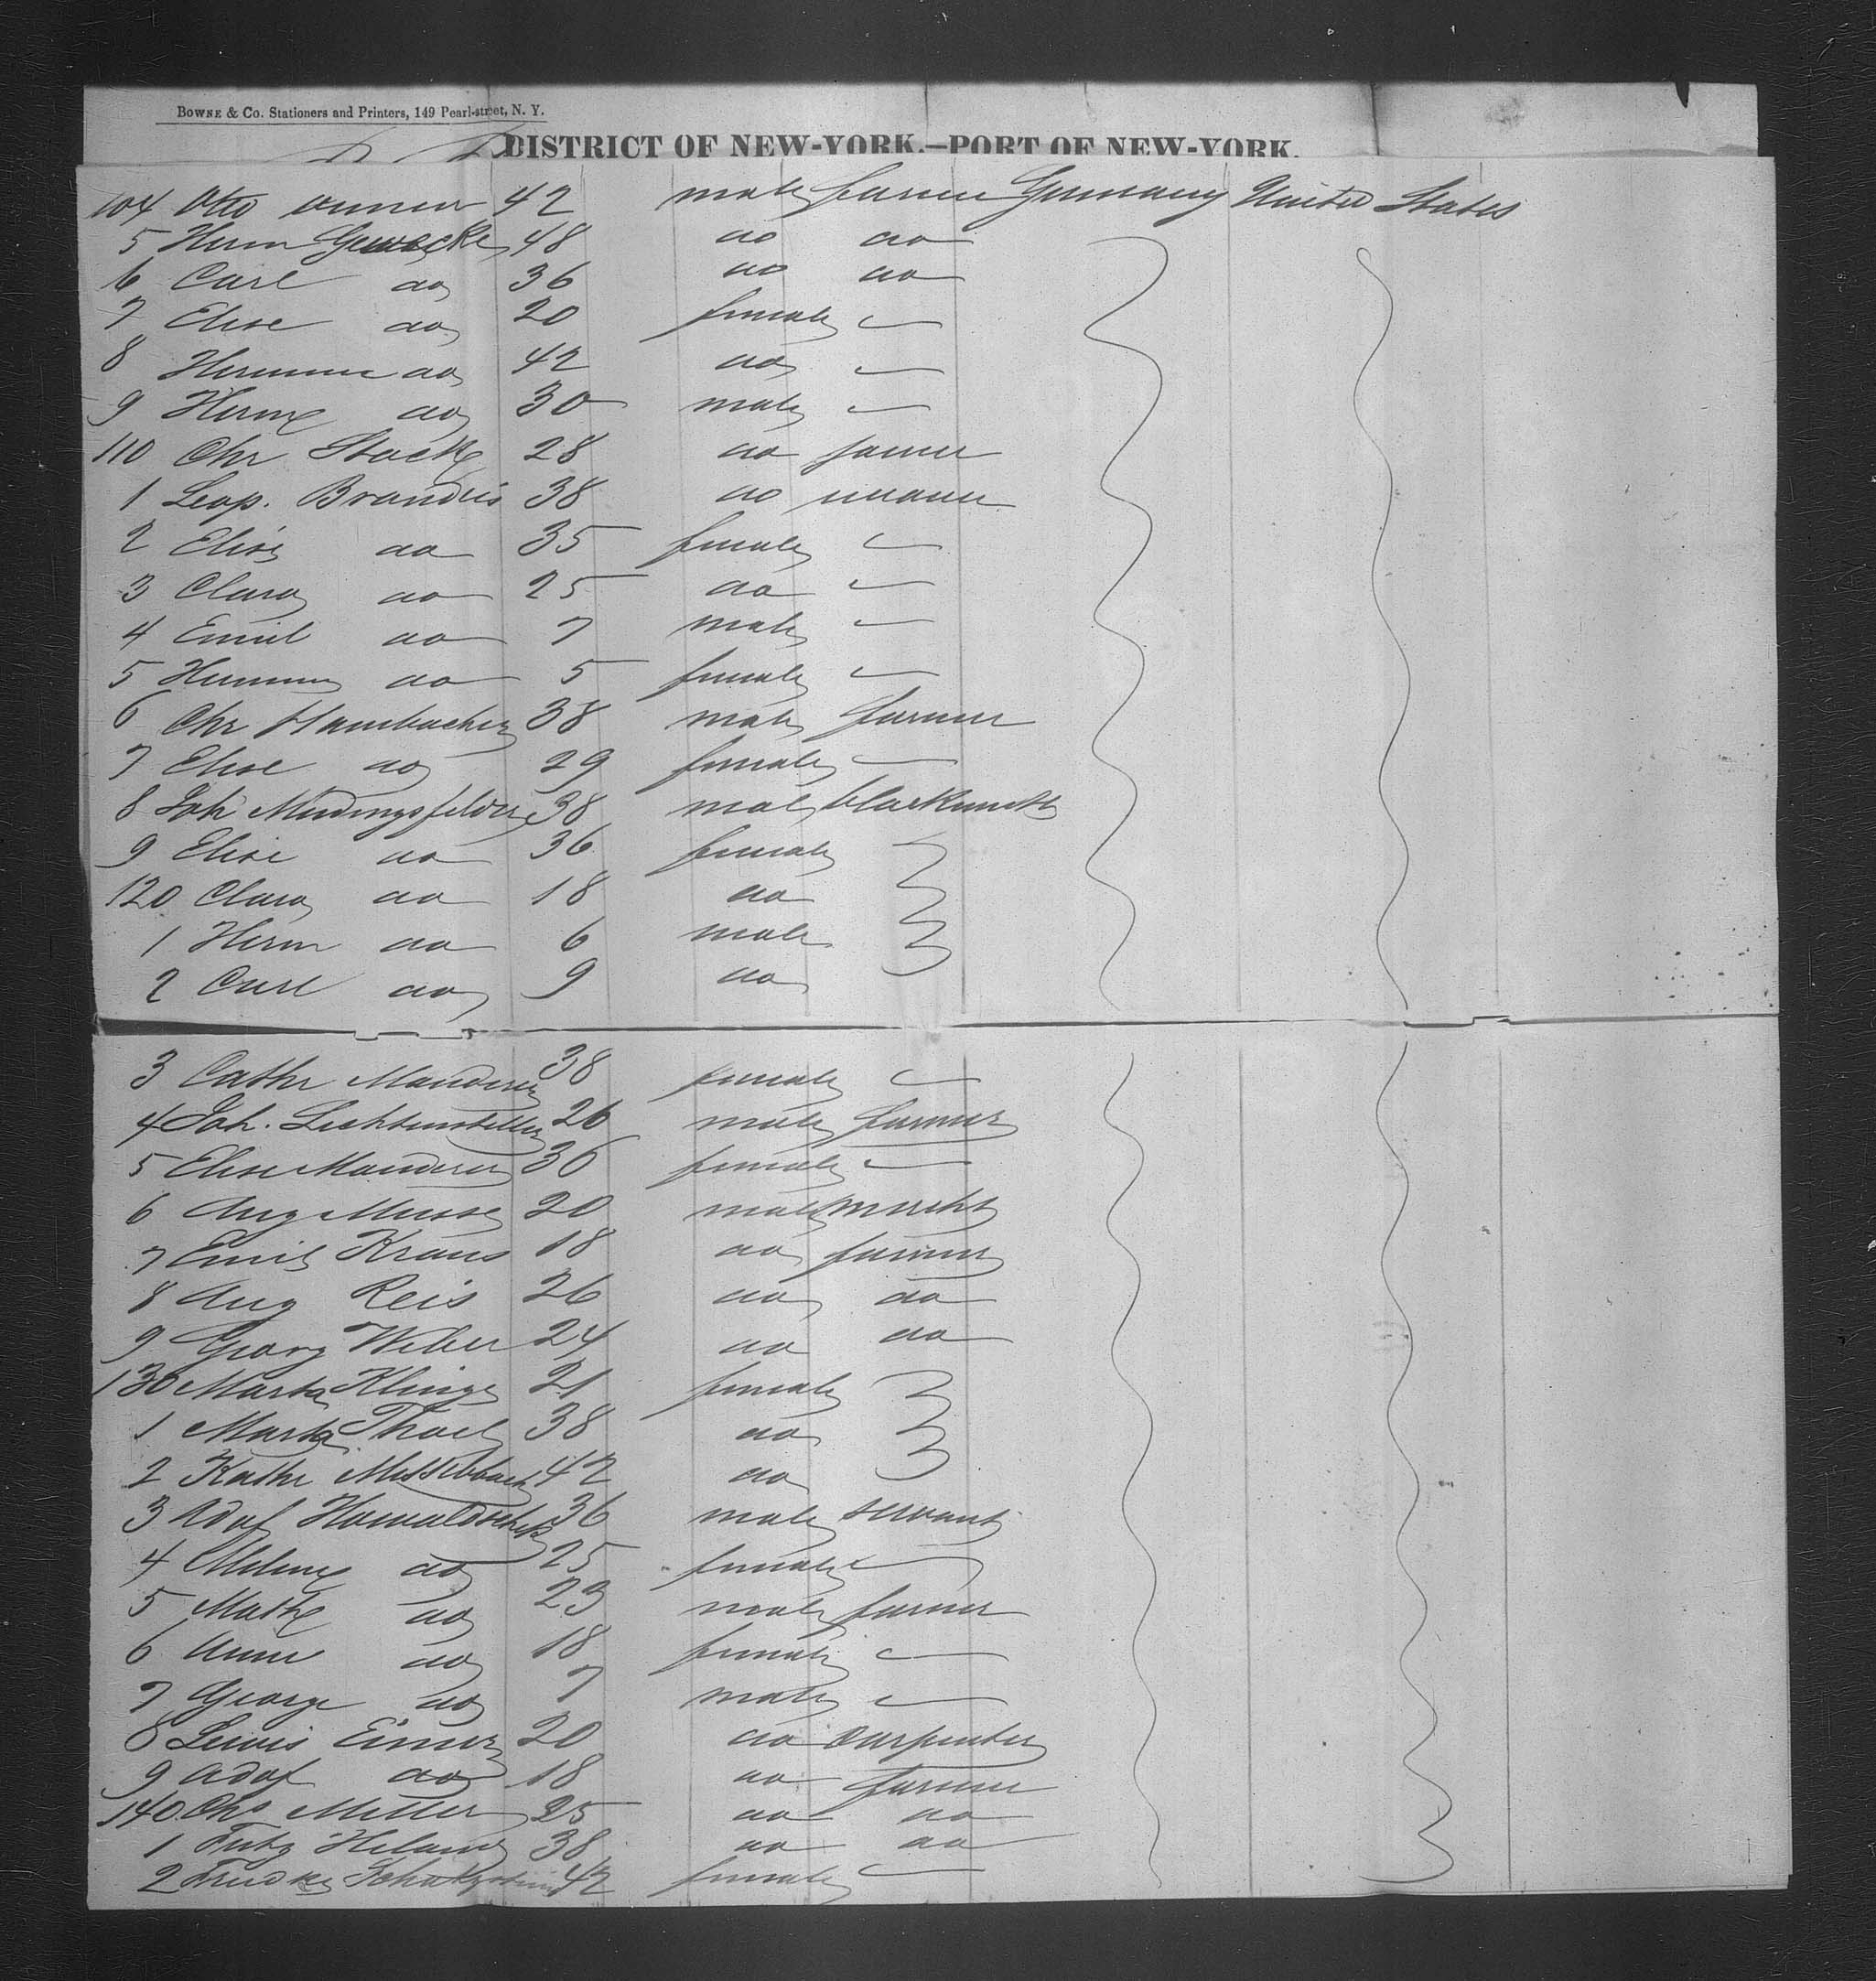 BOWNE & CO. Stationers and Printers, 149 Pearl-street, N. Y.
DISTRICT OF NEW-YORK.—PORT OF NEW-YORK.
104 Otto 42 male farmer Germany United States
5 Herm Gewecke 48 do do
6 Carl do 36 do do
7 Elise do 20 female
8 do 42 do
9 do 30 male
110 Chr 28 do
1 Leop. Brandeis 38 do
2 Elise do 35 female
3 Clara do 25 do
4 Emil do 7 male
5 do 5 female
6 Chr Hambacher 38 male farmer
7 Elise do 29 female
8 Joh 38 male blacksmith
9 Elise do 36 female
120 Clara do 18 do
1 Herm do 6 male
2 Carl do 9 do
3 Cathr Manderer 38 female
4 Joh. 26 male farmer
5 Elise Manderer 36 female
6 Aug Musse 20 male mercht
7 Emil Kraus 18 do farmer
8 Aug Reis 26 do do
9 Georg Weber 24 do do
130 Martha Klinge 21 female
1 Martha 38 do
2 Kathr 42 do
3 Adof 36 male servant
4 do 25 female
5 do 23 male farmer
6 Anna do 18 female
7 George do 7 male
8 Lewis Eimer 20 do carpenter
9 Adof do 18 do farmer
140 Chs Miller 25 do do
1 Fritz 38 do do
2 42 female